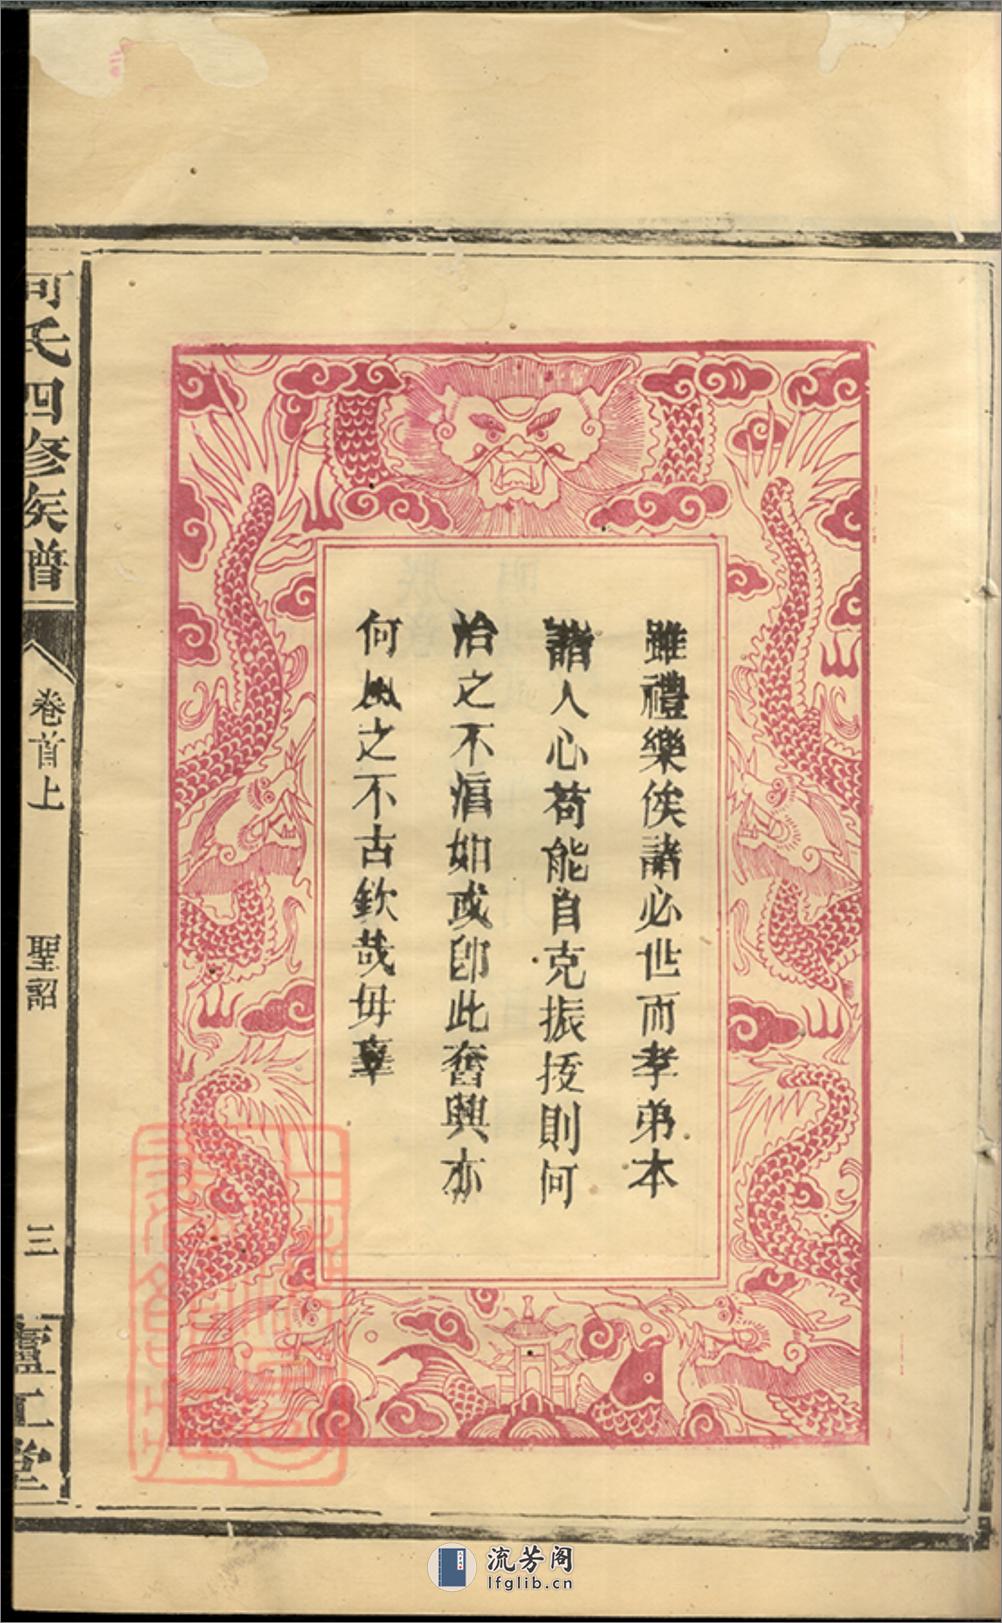 雖禮樂俟諸必世而孝弟本
諸人心苟能自克振拔則何
治之不淳如或卽此奮興亦
何風之不古欽哉毋
何氏四修族譜
卷首上
聖詔
三
堂
流芳阁
lfglib.cn